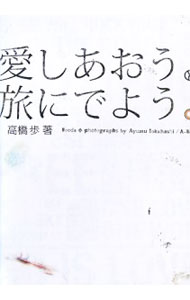 愛しあおう。
旅にでよう。
高橋歩 著 Words & photographs by Ayumu Takahashi / A-